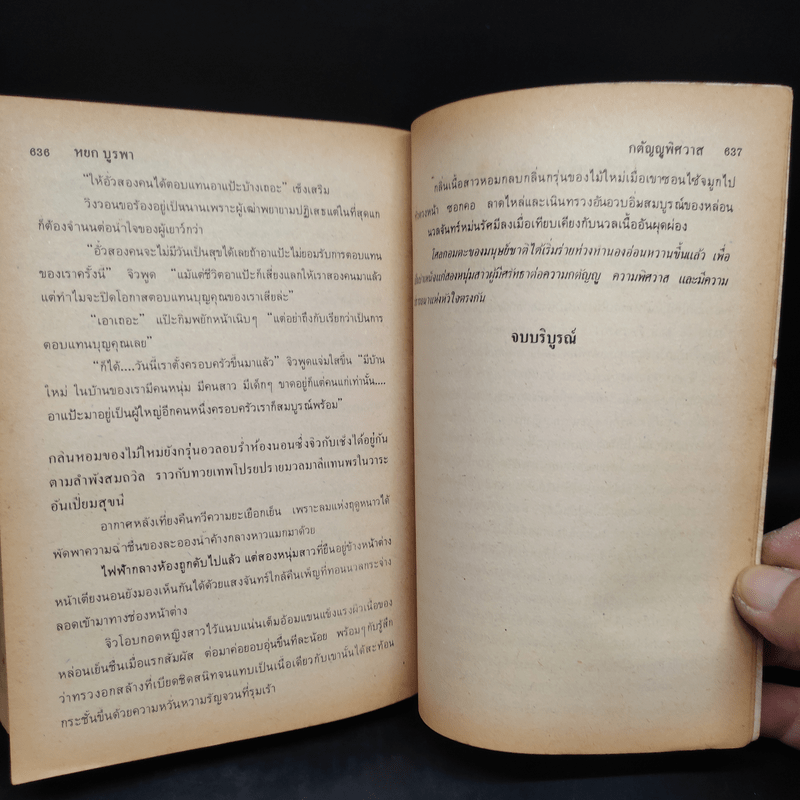 636 หยก บูรพา
"ให้อั๊วสองคนได้ตอบแทนอาแป๊ะบ้างเถอะ" เช็งเสริม
วิงวอนขอร้องอยู่เป็นนานเพราะผู้เฒ่าพยายามปฏิเสธแต่ในที่สุดแก
ก็ต้องจำนนต่อน้ำใจของผู้เยาว์กว่า
"อั๊วสองคนจะไม่มีวันเป็นสุขได้เลยถ้าอาแป๊ะไม่ยอมรับการตอบแทน
ของเราครั้งนี้" จิวพูด "แม้แต่ชีวิตอาแป๊ะก็เสี่ยงแลกให้เราสองคนมาแล้ว
แต่ทำไมจะปิดโอกาสตอบแทนบุญคุณของเราเสียล่ะ"
"เอาเถอะ" แป๊ะกิมพยักหน้าเนิบๆ "แต่อย่าถึงกับเรียกว่าเป็นการ
ตอบแทนบุญคุณเลย"
"ก็ได้....วันนี้เราตั้งครอบครัวขึ้นมาแล้ว" จิวพูดแจ่มใสขึ้น "มีบ้าน
ใหม่ ในบ้านของเรามีคนหนุ่ม มีคนสาว มีเด็กๆ ขาดอยู่ก็แต่คนแก่เท่านั้น....
อาแป๊ะมาอยู่เป็นผู้ใหญ่อีกคนหนึ่งครอบครัวเราก็สมบูรณ์พร้อม"
กลิ่นหอมของไม้ใหม่ยังกรุ่นอวลอบร่ำห้องนอนซึ่งจิวกับเช็งได้อยู่กัน
ตามลำพังสมถวิล ราวกับทวยเทพโปรยปรายมวลมาลีแทนพรในวาระ
อันเปี่ยมสุขนี้
อากาศหลังเที่ยงคืนทวีความยะเยือกเย็น เพราะลมแห่งฤดูหนาวได้
พัดพาความฉ่ำชื่นของละอองน้ำค้างกลางหาวแมกมาด้วย
ไฟฟ้ากลางห้องถูกดับไปแล้ว แต่สองหนุ่มสาวที่ยืนอยู่ข้างหน้าต่าง
หน้าเตียงนอนยังมองเห็นกันได้ด้วยแสงจันทร์ใกล้คืนเพ็ญที่ทอนวลกระจ่าง
ลอดเข้ามาทางช่องหน้าต่าง
จิวโอบกอดหญิงสาวไว้แนบแน่นเต็มอ้อมแขนแข็งแรงผิวเนื้อของ
หล่อนเย็นชื่นเมื่อแรกสัมผัส ต่อมาค่อยอบอุ่นขึ้นทีละน้อย พร้อมๆกับรู้สึก
ว่าทรวงอกสล้างที่เบียดชิดสนิทจนแทบเป็นเนื้อเดียวกับเขานั้นได้สะท้อน
กระชั้นขึ้นด้วยความหวั่นหวามรัญจวนที่รุมเร้า
กตัญญูพิศวาส 637
กลิ่นเนื้อสาวหอมกลบกลิ่นกรุ่นของไม้ใหม่เมื่อเขาซอนไซ้จมูกไป
หน้า ซอกคอ ลาดไหล่และเนินทรวงอันอวบอิ่มสมบูรณ์ของหล่อน
นวลจันทร์หม่นรัศมีลงเมื่อเทียบเคียงกับนวลเนื้ออันผุดผ่อง
โศลกอมตะของมนุษย์ชาติได้เริ่มร่ายท่วงทำนองอ่อนหวานขึ้นแล้ว เพื่อ
แก่สองหนุ่มสาวผู้มีศรัทธาต่อความกตัญญู ความพิศวาส และมีความ
แห่งหัวใจตรงกัน
จบบริบูรณ์